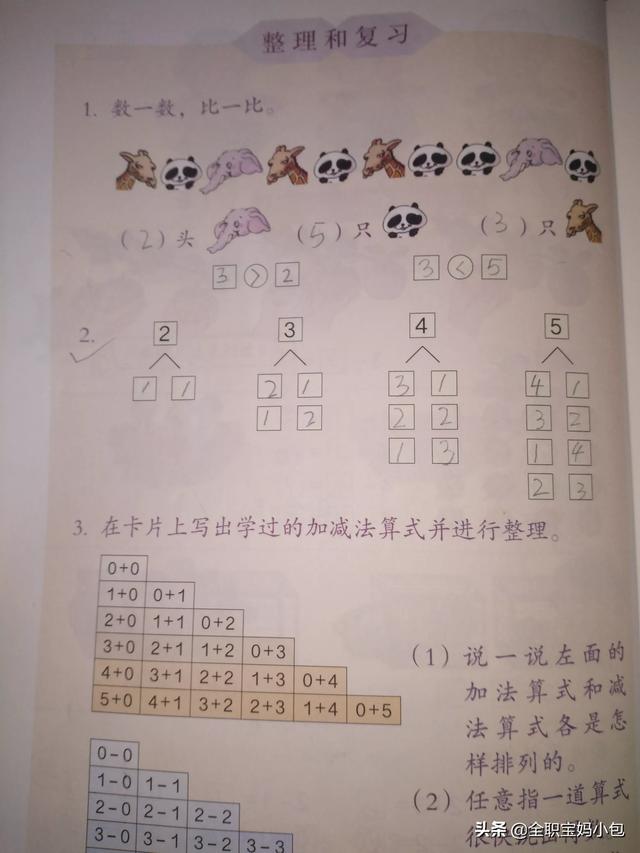 整理和复习
1. 数一数，比一比。
(2)头 (5)只 (3)只
3 > 2 3 < 5
2. 2 3 4 5
1 1 2 1 3 1 4 1
1 2 2 2 3 2
1 3 1 4
2 3
3. 在卡片上写出学过的加减法算式并进行整理。
0+0
1+0 0+1
2+0 1+1 0+2
3+0 2+1 1+2 0+3
4+0 3+1 2+2 1+3 0+4
5+0 4+1 3+2 2+3 1+4 0+5
(1) 说一说左面的
加法算式和减
法算式各是怎
样排列的。
0-0
1-0 1-1
2-0 2-1 2-2
3-0 3-1 3-2 3-3
(2) 任意指一道算式
很快说出得数
头条 @全职宝妈小包